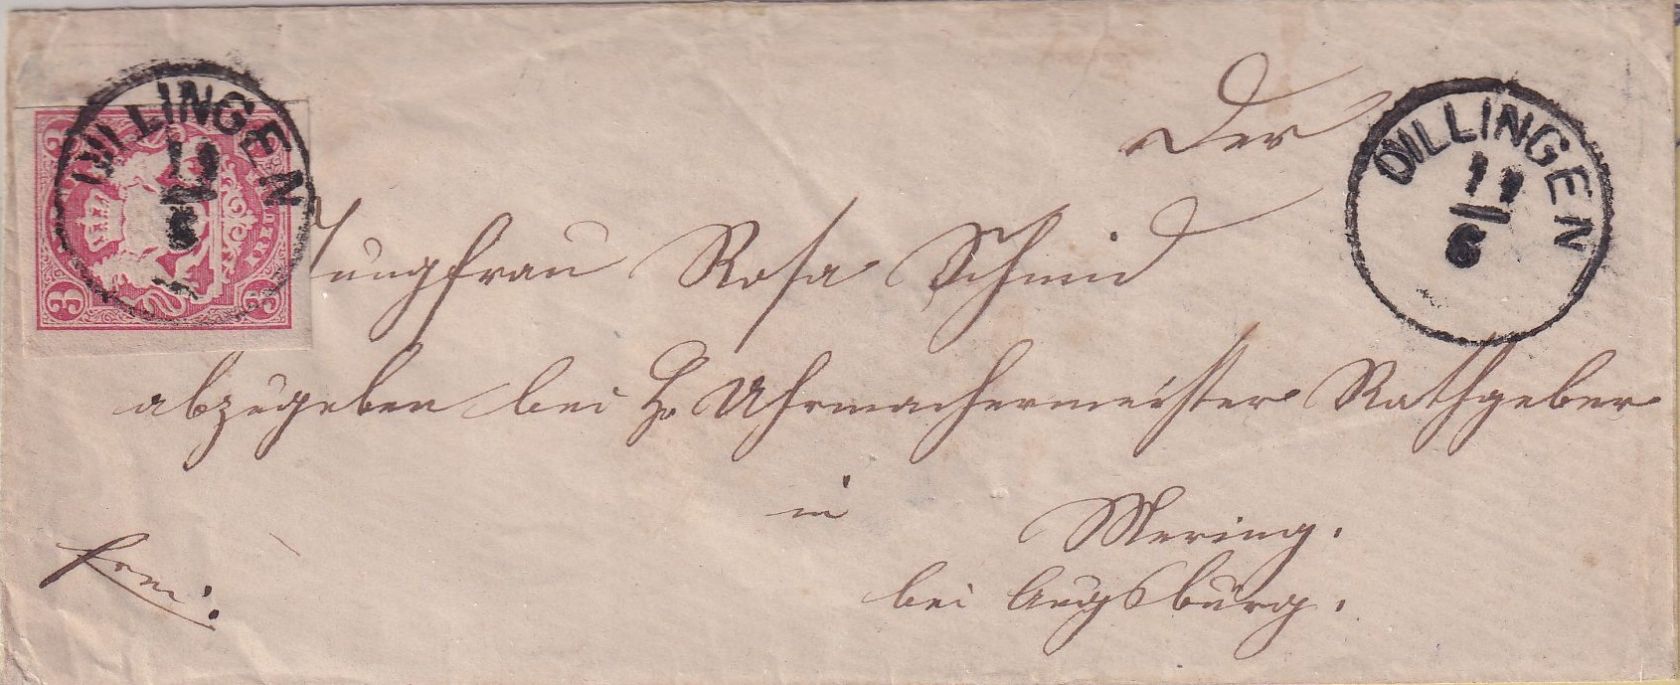 DILLINGEN
11
6
3
3
3
KREUZER
DILLINGEN
11
6
Der
Jungfrau Rosa Schmid
abzugeben bei H. Uhrmachermeister Rathgeber
in
Mering.
bei Augsburg.
frei.